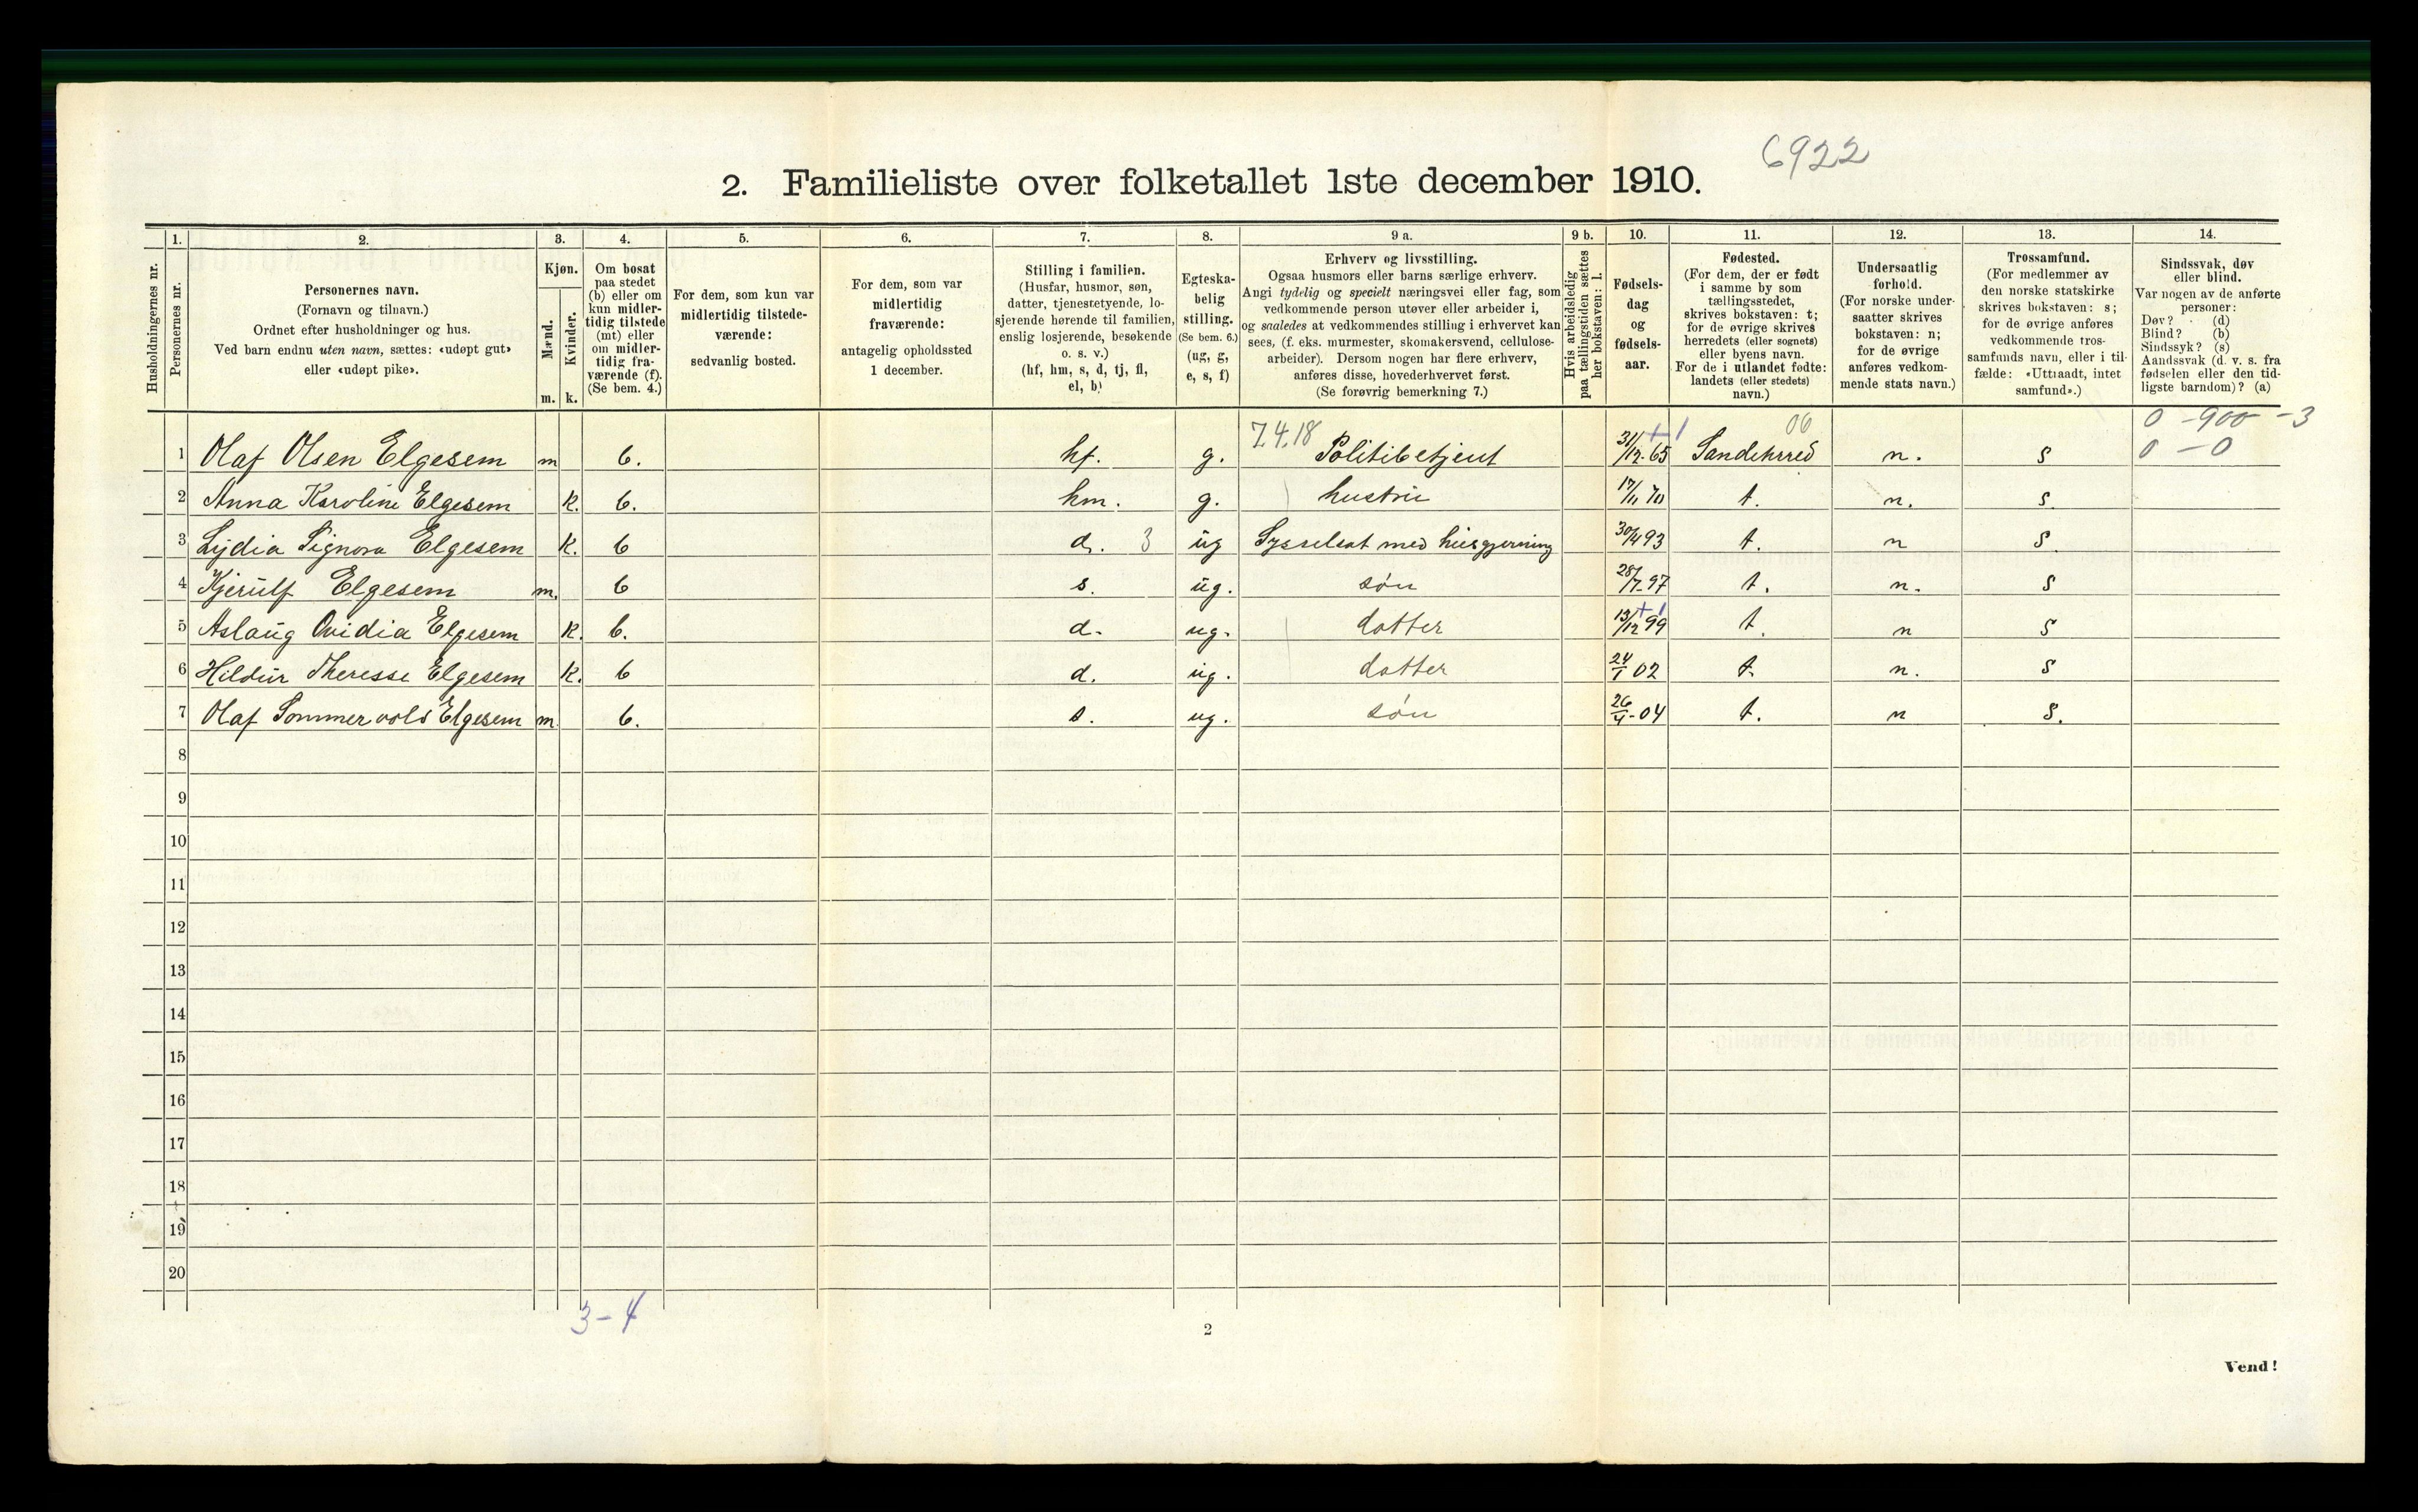 6922
2. Familieliste over folketallet 1ste december 1910.
Husholdningernes nr.
1.
Personernes nr.
2.
Personernes navn.
(Fornavn og tilnavn.)
Ordnet efter husholdninger og hus.
Ved barn endnu uten navn, sættes: «udøpt gut»
eller «udøpt pike».
3.
Kjøn.
Mænd.
m.
Kvinder.
k.
4.
Om bosat
paa stedet
(b) eller om
kun midler-
tidig tilstede
(mt) eller
om midler-
tidig fra-
værende (f).
(Se bem. 4.)
5.
For dem, som kun var
midlertidig tilstede-
værende:
sedvanlig bosted.
6.
For dem, som var
midlertidig
fraværende:
antagelig opholdssted
1 december.
7.
Stilling i familien.
(Husfar, husmor, søn,
datter, tjenestetyende, lo-
sjerende hørende til familien,
enslig losjerende, besøkende
o. s. v.)
(hf, hm, s, d, tj, fl,
el, b)
8.
Egteska-
belig
stilling.
(Se bem. 6.)
(ug, g,
e, s, f)
9 a.
Erhverv og livsstilling.
Ogsaa husmors eller barns særlige erhverv.
Angi tydelig og specielt næringsvei eller fag, som
vedkommende person utøver eller arbeider i,
og saaledes at vedkommendes stilling i erhvervet kan
sees, (f. eks. murmester, skomakersvend, cellulose-
arbeider). Dersom nogen har flere erhverv,
anføres disse, hovederhvervet først.
(Se forøvrig bemerkning 7.)
9 b.
Hvis arbeidsledig
paa tællingstiden sættes
her bokstaven: l.
10.
Fødsels-
dag
og
fødsels-
aar.
11.
Fødested.
(For dem, der er født
i samme by som
tællingsstedet,
skrives bokstaven: t;
for de øvrige skrives
herredets (eller sognets)
eller byens navn.
For de i utlandet fødte:
landets (eller stedets)
navn.)
12.
Undersaatlig
forhold.
(For norske under-
saatter skrives
bokstaven: n;
for de øvrige
anføres vedkom-
mende stats navn.)
13.
Trossamfund.
(For medlemmer av
den norske statskirke
skrives bokstaven: s;
for de øvrige anføres
vedkommende tros-
samfunds navn, eller i til-
fælde: «Uttraadt, intet
samfund».)
14.
Sindssvak, døv
eller blind.
Var nogen av de anførte
personer:
Døv? (d)
Blind? (b)
Sindssyk? (s)
Aandssvak (d. v. s. fra
fødselen eller den tid-
ligste barndom)? (a)
7.4.18 +1 00 0 - 900 - 3
1 Olaf Olsen Elgesem m b. hf. g. Politibetjent 31/12-65 Sandeherred n. s 0 - 0
2 Anna Karoline Elgesem k. b. hm. g. hustru 17/11 70 t. n. s.
3 Lydia Signora Elgesem k. b d. 3 ug Sysselsat med husgjerning 30/4 93 t. n s.
4 Kjerulf Elgesem m. b s. ug. søn 28/7-97 t. n. s
+1
5 Aslaug Ovidia Elgesem k. b. d. ug. datter 13/12 99 t. n s
6 Hildur Theresse Elgesem k. b d. ug. datter 24/1 02 t. n. s
7 Olaf Sommervold Elgesem m. b. s. ug. søn 26/4-04 t. n s.
8
9
10
11
12
13
14
15
16
17
18
19
20
3-4
2
Vend!